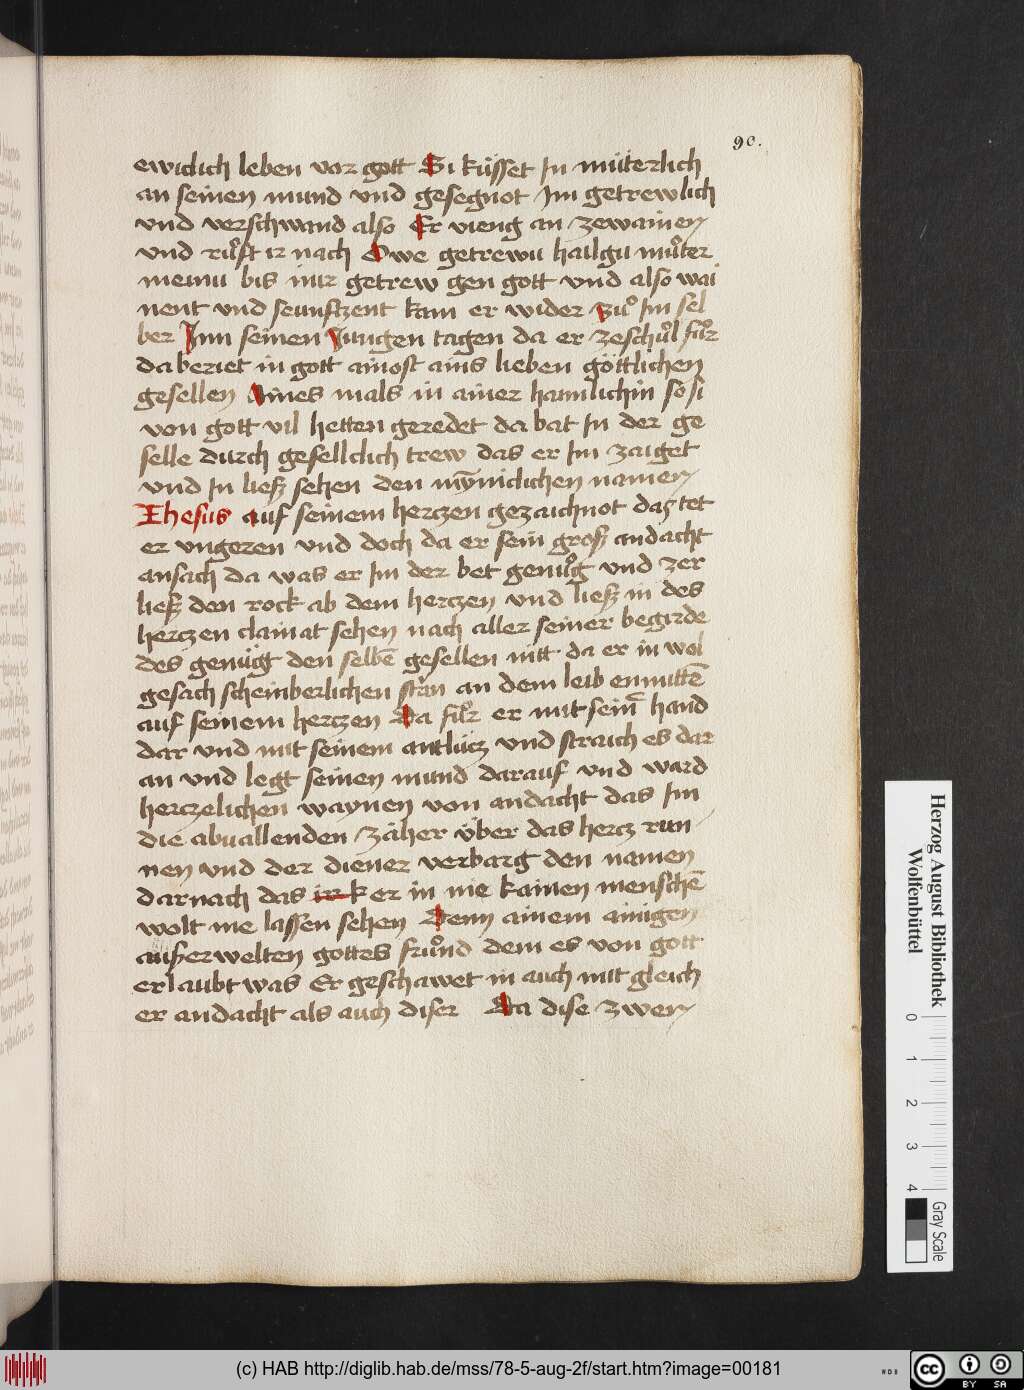 90.
ewiclich leben vor gott Si küsset In müterlich
an seinen mund vnd gesegnot Im getrewlich
vnd verschwand also Er vieng an zewainen
vnd růft ir nach Owe getrewu hailgu můter
meinu bis mir getrew gen gott vnd also wai
nent vnd seunftzent kam er wider zuͦ Im sel
ber Inn seinen Jungen tagen da er zeschůl fůr
da beriet in gott ainost ains lieben göttlichen
gesellen Aines mals in ainer haimlichin so si
von gott vil hetten geredet da bat In der ge
selle durch gesellclich trew das er Im zaiget
vnd In ließ sehen den mynnclichen namen
Ihesus auf seinem hertzen gezaichnot das tet
er vngeren vnd doch da er sein groß andacht
ansach da was er Im der bet genůg vnd zer
ließ den rock ab dem hertzen vnd ließ in des
hertzen clainat sehen nach aller seiner begirde
des genügt den selbē gesellen nitt da er in wol
gesach scheinberlichen stān an dem leib enmittē
auf seinem hertzen Da fůr er mit seinr̄ hand
dar vnd mit seinem antlütz vnd straich es dar
an vnd legt seinen mund darauf vnd ward
hertzelichen waynen von andacht das Im
die abuallenden zäher über das hertz run
nen vnd der diener verbarg den namen
darnach das irr k er in nie kainen menschē
wolt me lassen sehen Denn ainem ainigen
außerwelten gottes frůnd dem es von gott
erlaubt was Er geschawet in auch mit gleich
er andacht als auch diser Da dise zwen
Herzog August Bibliothek
Wolfenbüttel
0 1 2 3 4
Gray Scale
(c) HAB http://diglib.hab.de/mss/78-5-aug-2f/start.htm?image=00181
cc BY SA